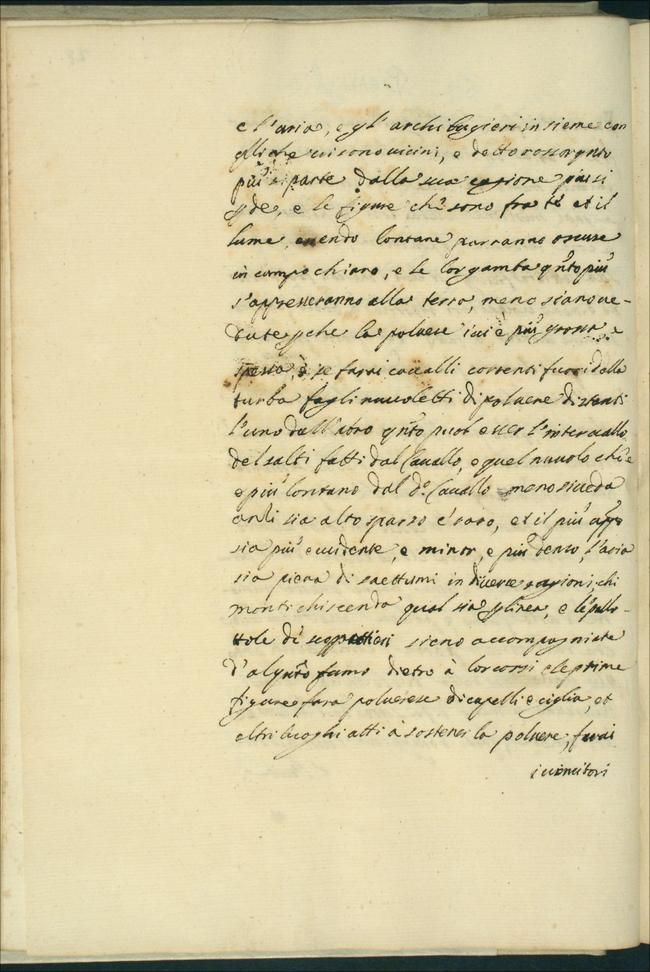 e l'aria, e gl' archibugieri insieme con
quelli che vi sono vicini, e detto rossor qnto
più si parte dalla sua cagione più si
pde, e le figure che sono fra te et il
lume, essendo lontane parranno oscure
in campo chiaro, e le lor gambe qnto più
s'appresseranno alla terra, meno siano ve-
dute, pche la poluere ivi è più grossa e
spessa, e se farai cavalli correnti fuori della
turba fagli nuvoletti di poluere distanti
l'uno dall'altro qnto può esser l'intervallo
de' salti fatti dal Cavallo, e quel nuvolo che è
e più lontano dal do. Cavallo meno si veda
anzi sia alto sparso e raro, et il più appo
sia più evidente, e minor, e più denso, l'aria
sia piena di saettumi in diverse ragioni, chi
monti chi scenda qual sia p linea, e le pallo-
ttole di scoppettieri sieno accompagnate
d'alqnto fumo dietro à lor corsi e le prime
figure fara poluerose di capelli e ciglia, et
altri luoghi atti à sostener la poluere, farai
i vincitori